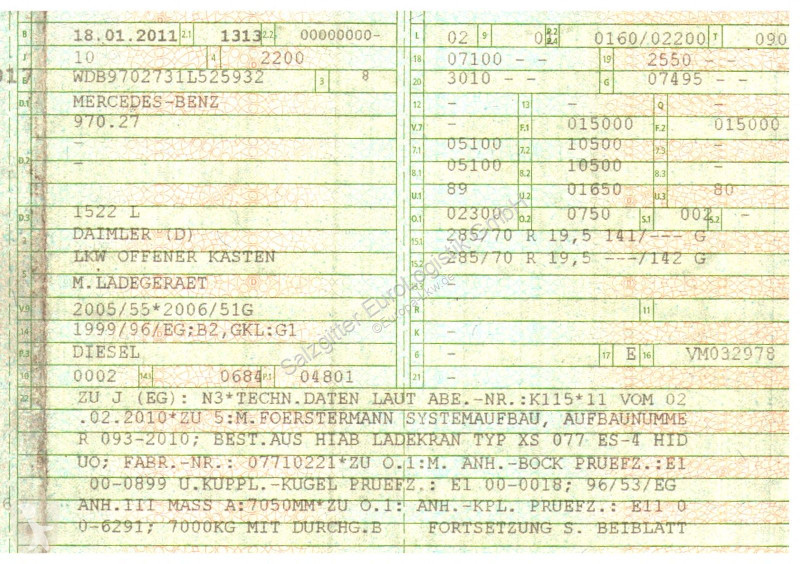 B 18.01.2011 2.1 1313 2.2 00000000-
J 10 4 2200
E WDB9702731L525932 3 8
D.1 MERCEDES-BENZ
970.27
-
D.2 -
D.3 1522 L
2 DAIMLER (D)
5 LKW OFFENER KASTEN
M.LADEGERAET
V.9 2005/55*2006/51G
14 1999/96/EG;B2,GKL:G1
P.3 DIESEL
10 0002 14.1 0684 P.1 04801
L 02 9 P.2 P.4 0160/02200 T 090
18 07100 - - 19 2550 - -
20 3010 - - G 07495 - -
12 - 13 - Q -
V.7 - F.1 015000 F.2 015000
7.1 05100 7.2 10500 7.3 -
8.1 05100 8.2 10500 8.3 -
U.1 89 U.2 01650 U.3 80
O.1 02300 O.2 0750 S.1 002 S.2 -
15.1 285/70 R 19,5 141/--- G
15.2 285/70 R 19,5 ---/142 G
-
R - 11
K -
6 - 17 E 16 VM032978
21 -
22 ZU J (EG): N3*TECHN.DATEN LAUT ABE.-NR.:K115*11 VOM 02
.02.2010*ZU 5:M.FOERSTERMANN SYSTEMAUFBAU, AUFBAUNUMME
R 093-2010; BEST.AUS HIAB LADEKRAN TYP XS 077 ES-4 HID
UO; FABR.-NR.: 07710221*ZU O.1:M. ANH.-BOCK PRUEFZ.:E1
00-0899 U.KUPPL.-KUGEL PRUEFZ.: E1 00-0018; 96/53/EG
ANH.III MASS A:7050MM*ZU O.1: ANH.-KPL. PRUEFZ.: E11 0
0-6291; 7000KG MIT DURCHG.B FORTSETZUNG S. BEIBLATT
Salzgitter Eurologistik GmbH